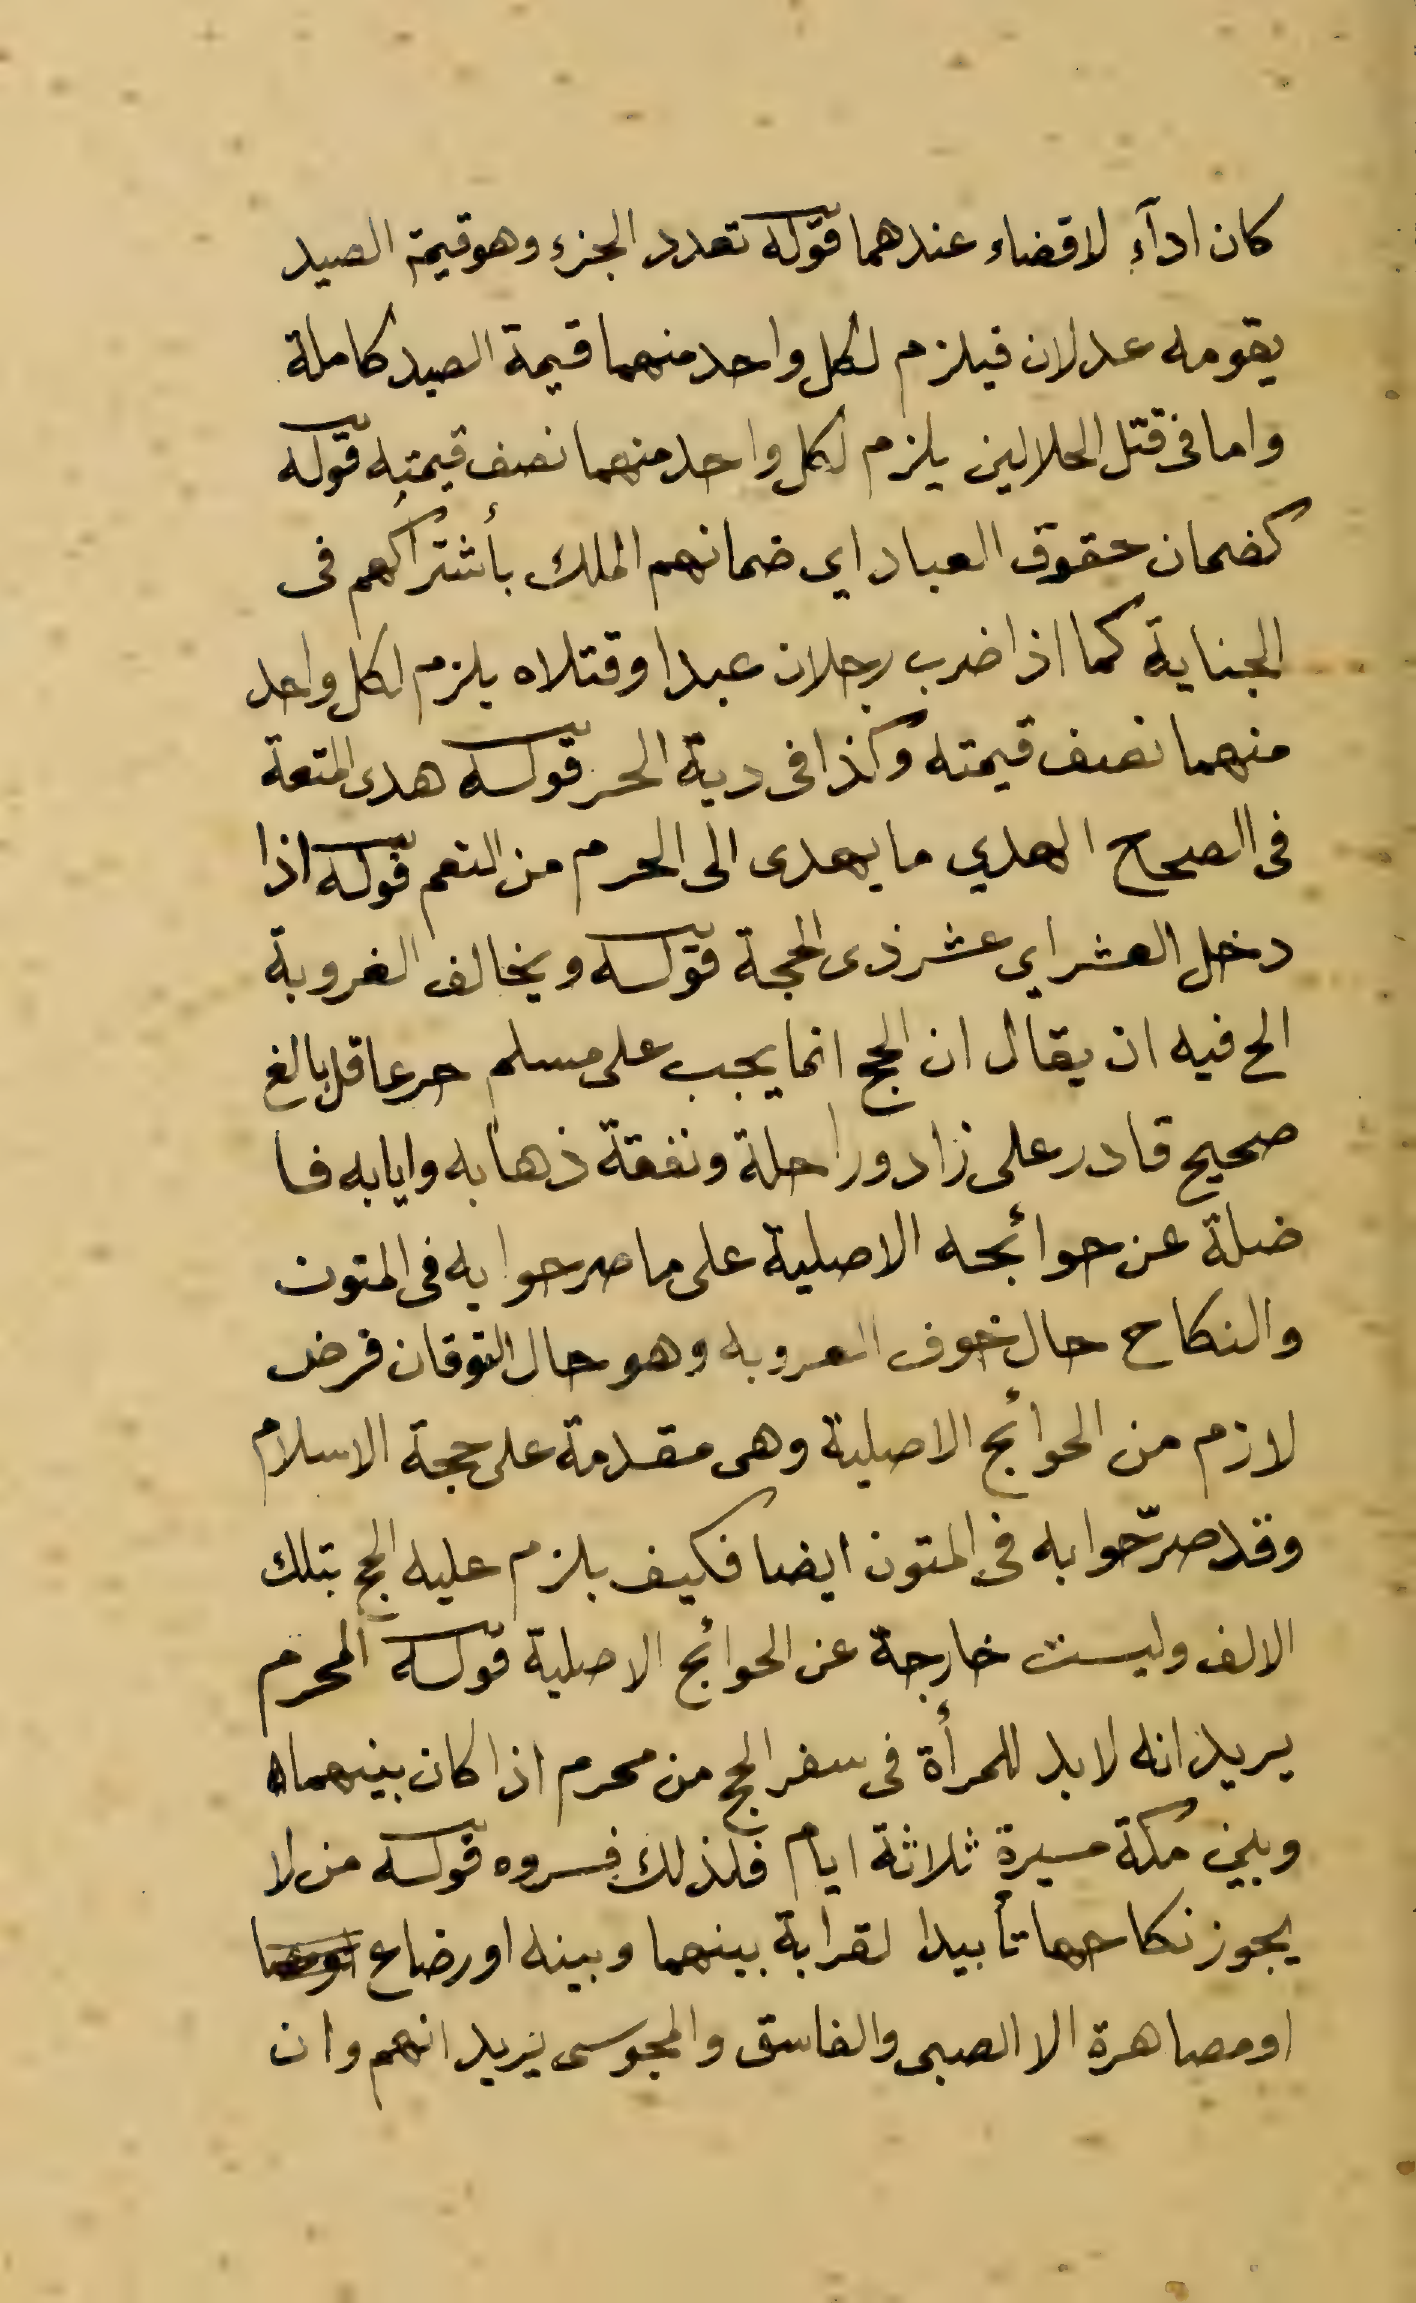 كان ادآء لاقضاء عندهما قوله تعدد الجزء وهو قيمة الصيد
يقومه عدلان فيلزم لكل واحد منهما قيمة الصيد كاملة
واما فى قتل الحلالين يلزم لكل واحد منهما نصف قيمته قوله
كضمان حقوق العباد اي ضمانهم الملك بأشتراكهم فى
الجناية كما اذا ضرب رجلان عبدا وقتلاه يلزم لكل واحد
منهما نصف قيمته وكذا فى دية الحر قوله هدى المتعة
فى الصحاح الهدي ما يهدى الى الحرم من النعم قوله اذا
دخل العشر اي عشر ذى الحجة قوله ويخالف الغروبة
الخ فيه ان يقال ان الحج انما يجب على مسلم حر عاقل بالغ
صحيح قادر على زاد وراحلة ونفقة ذهابه وايابه فا
ضلة عن حوائجه الاصلية على ما صرحوا به فى المتون
والنكاح حال خوف العروبه وهو حال التوقان فرض
لازم من الحوائج الاصلية وهى مقدمة على حجة الاسلام
وقد صرّحوا به فى المتون ايضا فكيف يلزم عليه الحج بتلك
الالف وليست خارجة عن الحوائج الاصلية قوله المحرم
يريد انه لابد للمرأة فى سفر الحج من محرم اذا كان بينهما
وبين مكة مسيرة ثلاثة ايام فلذلك فسروه قوله من لا
يجوز نكاحها تأبيدا لقرابة بينهما وبينه او رضاع
او مصاهرة الا الصبى والفاسق والمجوسى يريد انهم وان